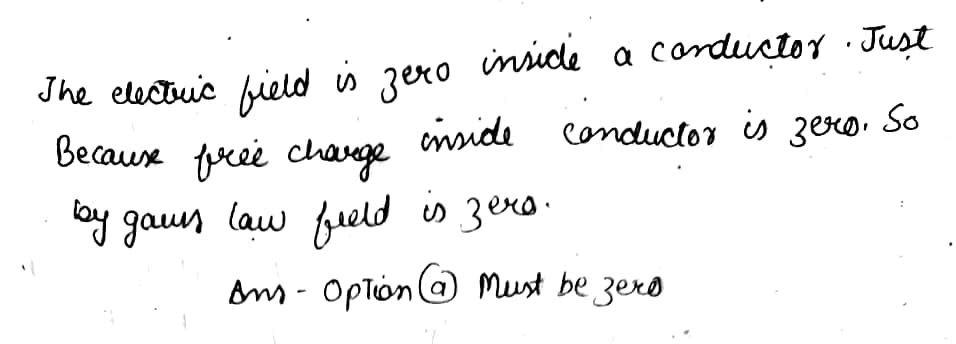 The electric field is zero inside a conductor. Just
Because free charge inside conductor is zero. So
by gauss law field is zero.
Ans - Option (a) Must be zero